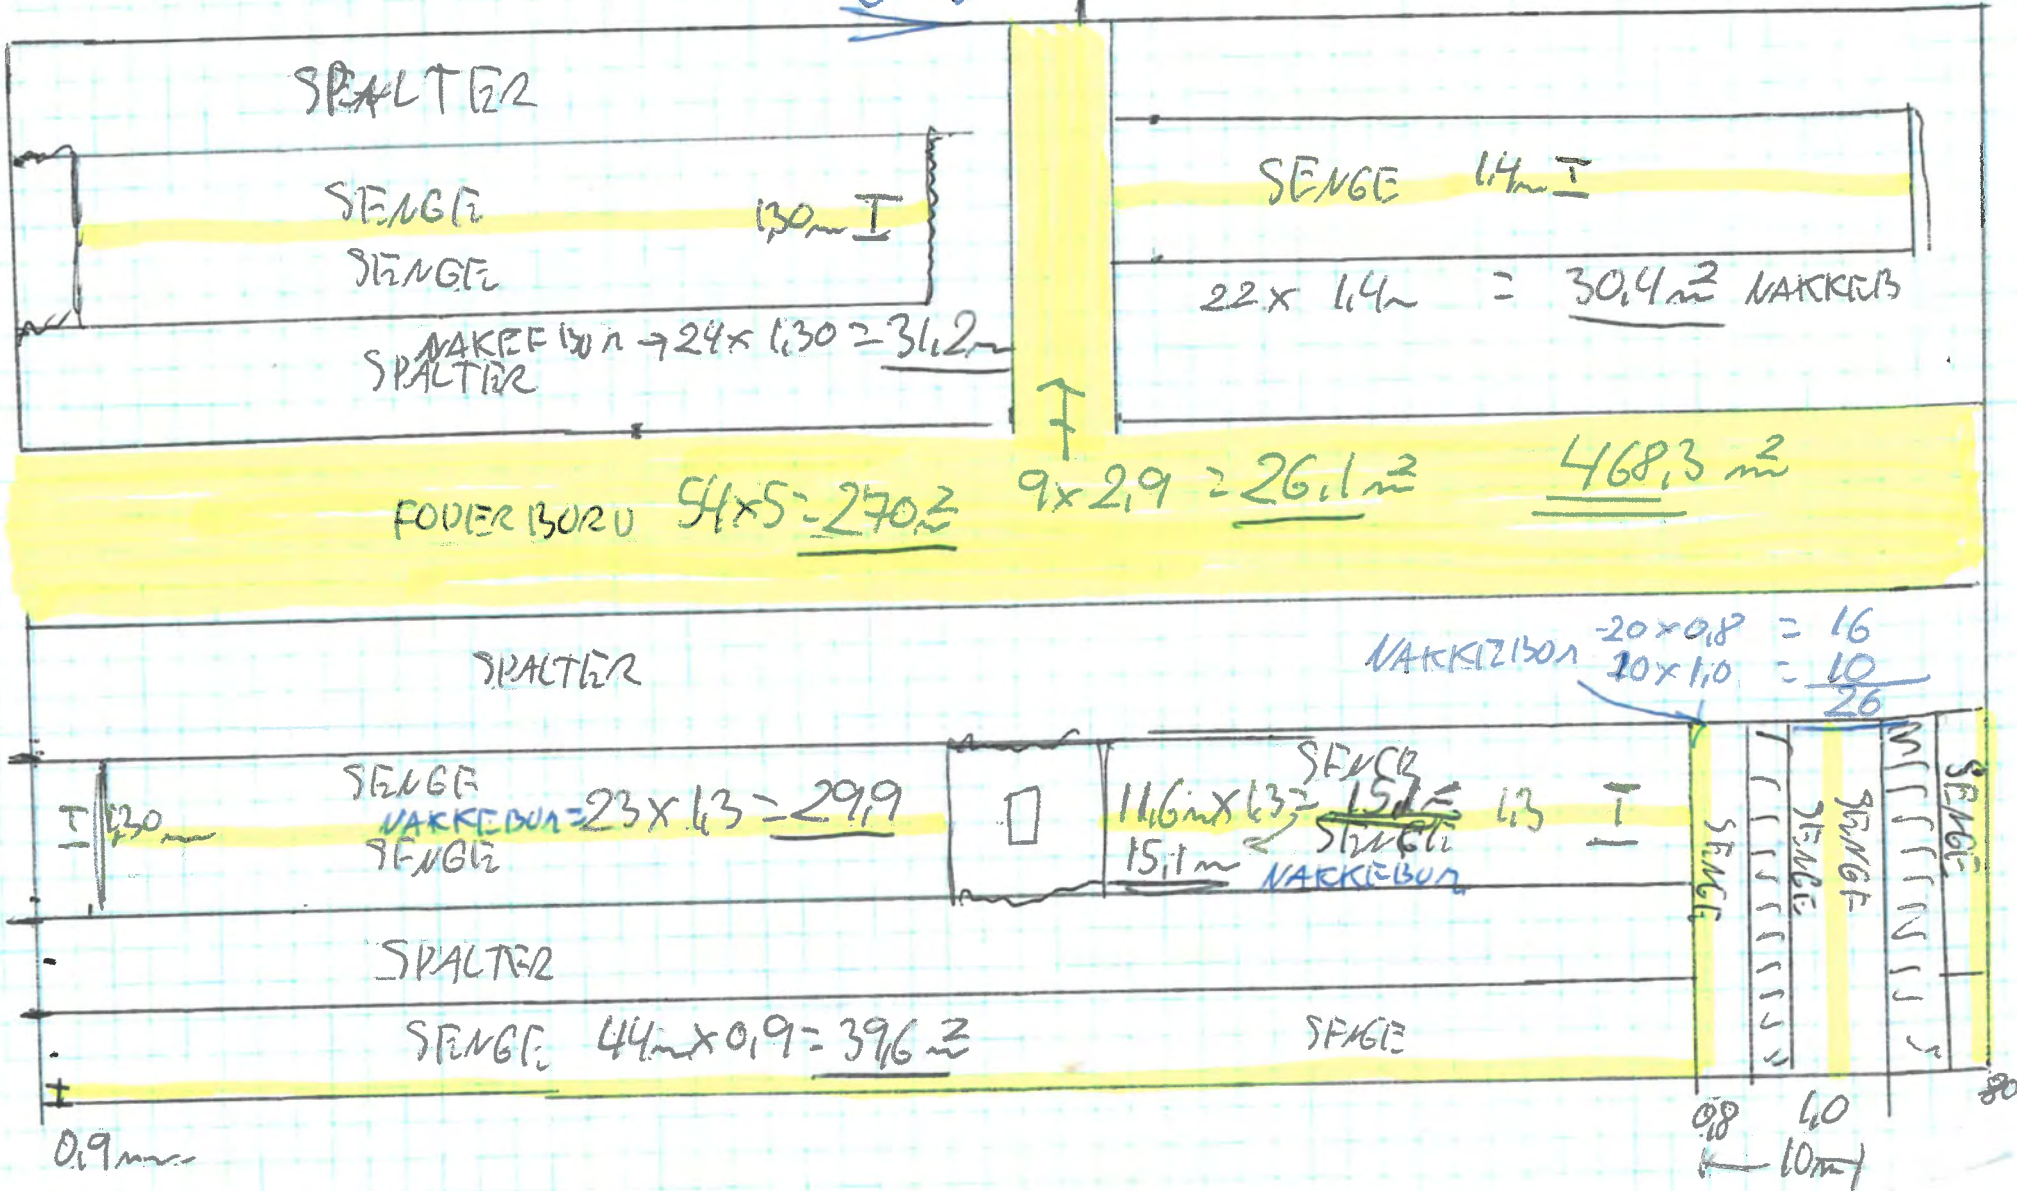 SPALTER
SENGE 1,30m
SENGE
NAKKEBOM → 24 x 1,30 = 31,2m
SPALTER
SENGE 1,4m
22 x 1,4m = 30,4m² NAKKEB
FODERBORD 54x5=270m² 9x2,9=26,1m² 468,3m²
SPALTER
NAKKEBOM 20x0,8 = 16
10x1,0 = 10
26
1,30m SENGE
NAKKEBOM = 23 x 1,3 = 29,9
SENGE
SENGE
11,6m x 1,3 = 15,1m² 1,3
15,1m SENGE
NAKKEBOM
SENGE
SENGE
SENGE
SENGE
SPALTER
SENGE 44m x 0,9 = 39,6m² SENGE
0,9m
0,8 1,0 80
10m